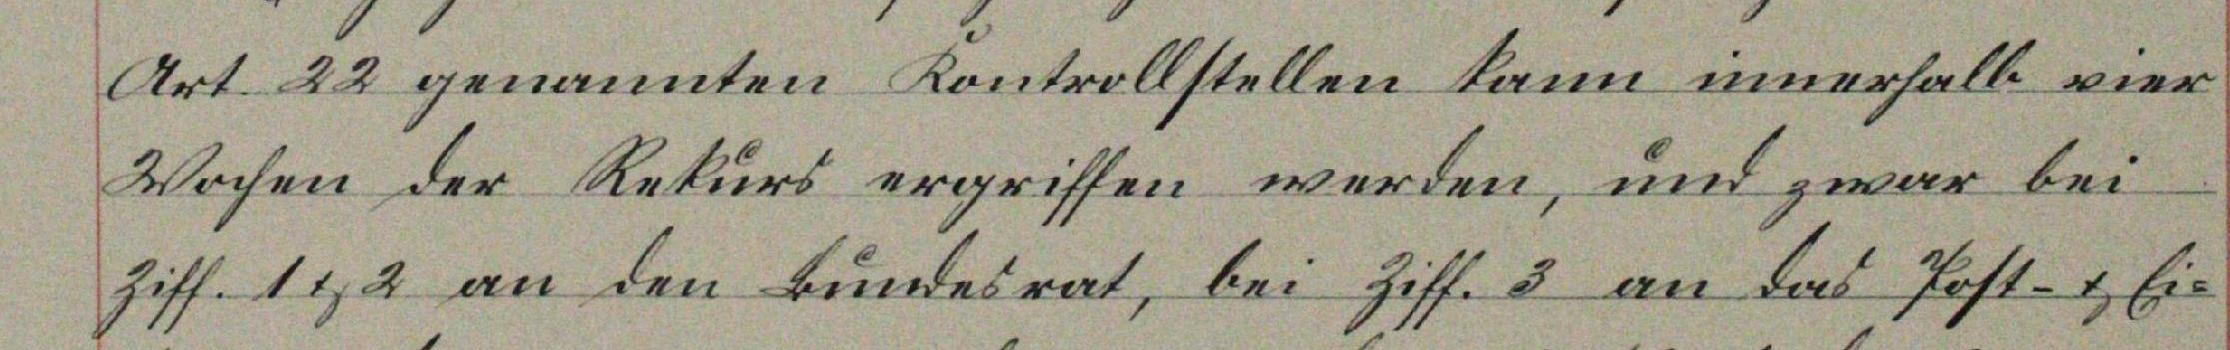 Art. 22 genannten Kontrollstellen kann innerhalb vier
Wochen der Rekurs ergriffen werden, und zwar bei
Ziff. 1 & 2 an den Bundesrat, bei Ziff. 3 an das Post- & Ei=